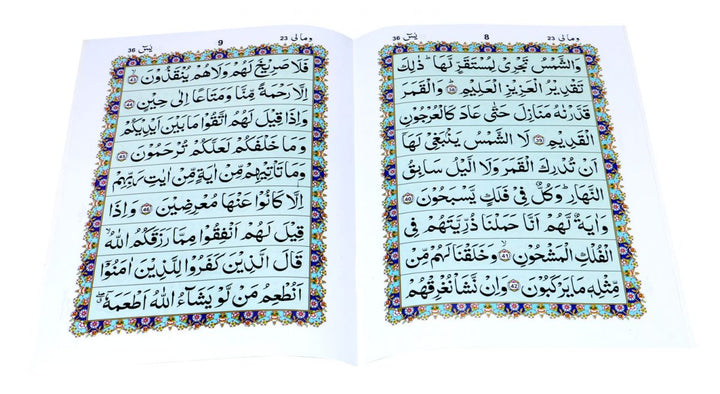 ومالی 23
8
یٰسٓ 36
وَالشَّمْسُ تَجْرِیْ لِمُسْتَقَرٍّ لَّهَا ؕ ذٰلِكَ
تَقْدِیْرُ الْعَزِیْزِ الْعَلِیْمِ ﴿38﴾ وَالْقَمَرَ
قَدَّرْنٰهُ مَنَازِلَ حَتّٰی عَادَ كَالْعُرْجُوْنِ
الْقَدِیْمِ ﴿39﴾ لَا الشَّمْسُ یَنْۢبَغِیْ لَهَاۤ
اَنْ تُدْرِكَ الْقَمَرَ وَلَا الَّیْلُ سَابِقُ
النَّهَارِ ؕ وَكُلٌّ فِیْ فَلَكٍ یَّسْبَحُوْنَ ﴿40﴾
وَاٰیَةٌ لَّهُمْ اَنَّا حَمَلْنَا ذُرِّیَّتَهُمْ فِی
الْفُلْكِ الْمَشْحُوْنِ ﴿41﴾ وَخَلَقْنَا لَهُمْ مِّنْ
مِّثْلِهٖ مَا یَرْكَبُوْنَ ﴿42﴾ وَاِنْ نَّشَاْ نُغْرِقْهُمْ
ومالی 23
9
یٰسٓ 36
فَلَا صَرِیْخَ لَهُمْ وَلَا هُمْ یُنْقَذُوْنَ ﴿43﴾
اِلَّا رَحْمَةً مِّنَّا وَمَتَاعًا اِلٰی حِیْنٍ ﴿44﴾
وَاِذَا قِیْلَ لَهُمُ اتَّقُوْا مَا بَیْنَ اَیْدِیْكُمْ
وَمَا خَلْفَكُمْ لَعَلَّكُمْ تُرْحَمُوْنَ ﴿45﴾
وَمَا تَاْتِیْهِمْ مِّنْ اٰیَةٍ مِّنْ اٰیٰتِ رَبِّهِمْ
اِلَّا كَانُوْا عَنْهَا مُعْرِضِیْنَ ﴿46﴾ وَاِذَا
قِیْلَ لَهُمْ اَنْفِقُوْا مِمَّا رَزَقَكُمُ اللّٰهُ ۙ
قَالَ الَّذِیْنَ كَفَرُوْا لِلَّذِیْنَ اٰمَنُوْۤا
اَنُطْعِمُ مَنْ لَّوْ یَشَآءُ اللّٰهُ اَطْعَمَهٗۤ ۖ